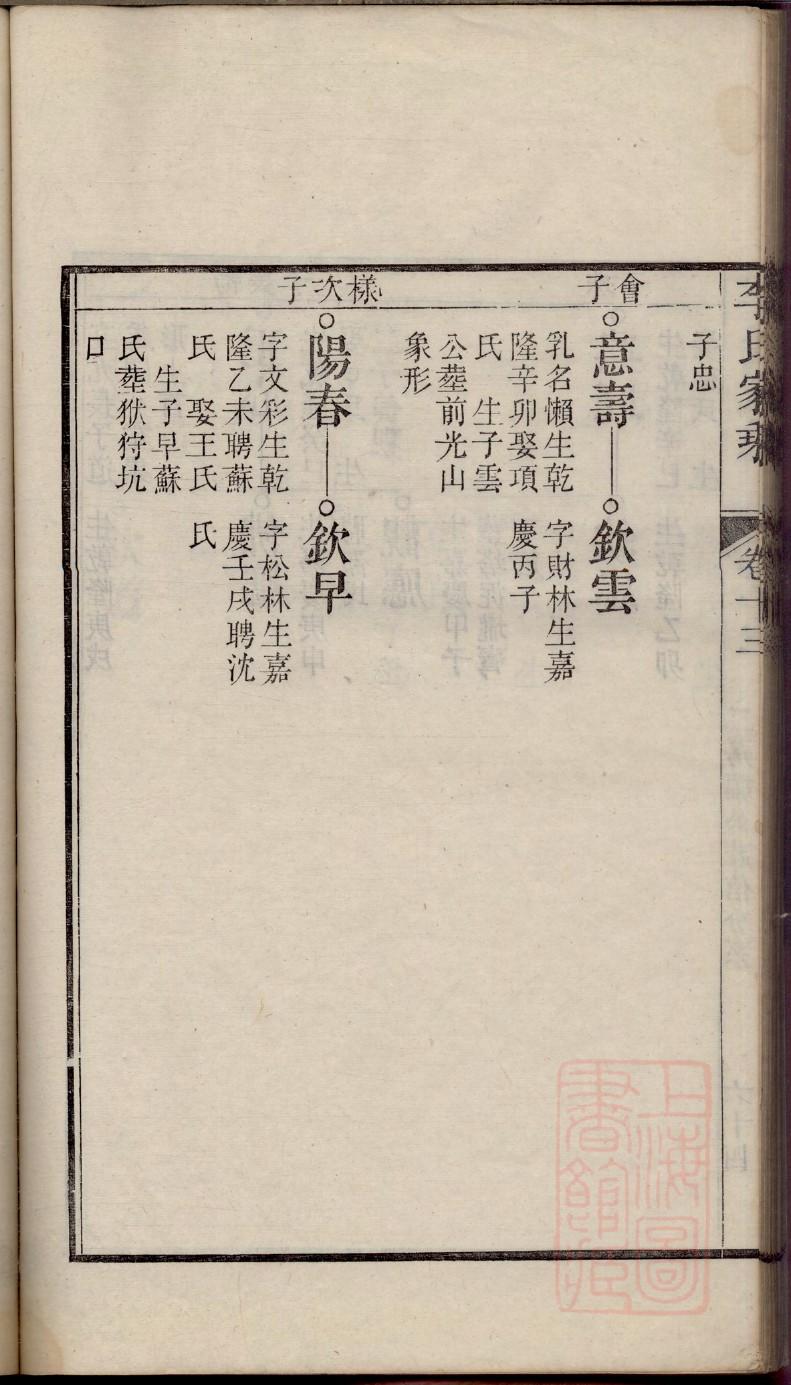 李氏家乘
卷十三
子忠
會子
意壽
乳名懶生乾
隆辛卯娶項
氏　生子雲
公塟前光山
象形
欽雲
字財林生嘉
慶丙子
樣次子
陽春
字文彩生乾
隆乙未聘蘇
氏　娶王氏
生子早蘇
氏塟狀狩坑
口
欽早
字松林生嘉
慶壬戌聘沈
氏
上海圖書館藏